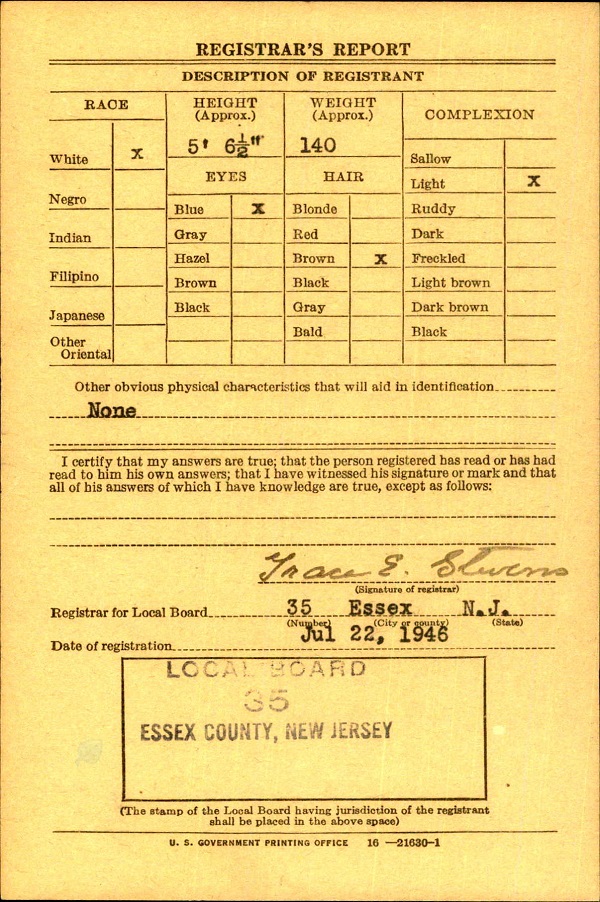 REGISTRAR'S REPORT
DESCRIPTION OF REGISTRANT
RACE
HEIGHT
(Approx.)
WEIGHT
(Approx.)
COMPLEXION
5' 6½"
140
White X
Negro
Indian
Filipino
Japanese
Other
Oriental
EYES
Blue X
Gray
Hazel
Brown
Black
HAIR
Blonde
Red
Brown X
Black
Gray
Bald
Sallow
Light X
Ruddy
Dark
Freckled
Light brown
Dark brown
Black
Other obvious physical characteristics that will aid in identification
None
I certify that my answers are true; that the person registered has read or has had
read to him his own answers; that I have witnessed his signature or mark and that
all of his answers of which I have knowledge are true, except as follows:
Grace E. Stevens
(Signature of registrar)
Registrar for Local Board 35 Essex N.J.
(Number) (City or county) (State)
Date of registration Jul 22, 1946
LOCAL BOARD
35
ESSEX COUNTY, NEW JERSEY
(The stamp of the Local Board having jurisdiction of the registrant
shall be placed in the above space)
U. S. GOVERNMENT PRINTING OFFICE 16—21630-1